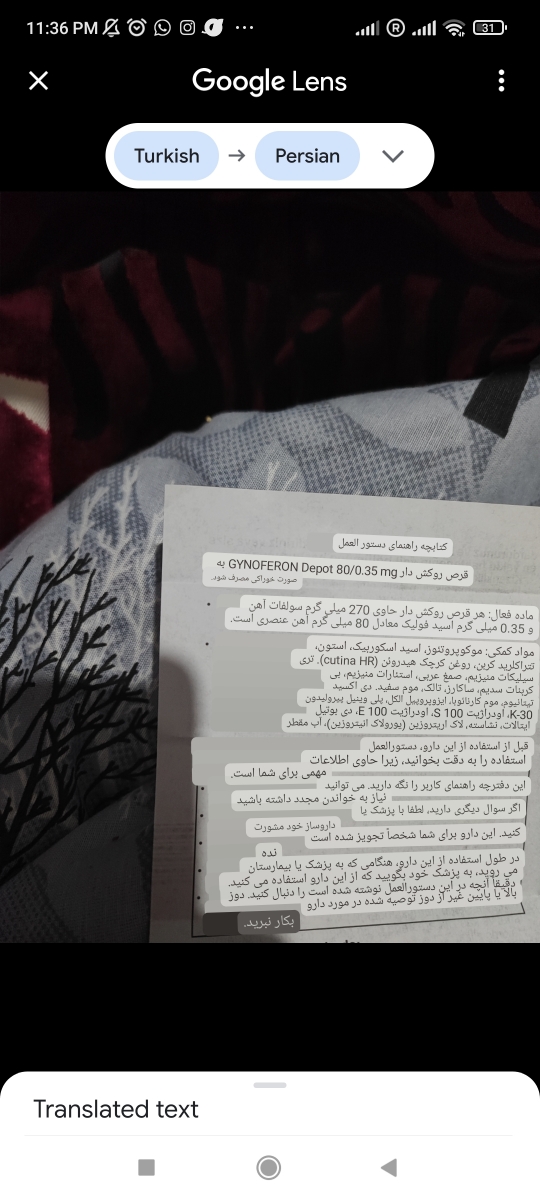 11:36 PM
R
31
Google Lens
Turkish → Persian
کتابچه راهنمای دستور العمل
قرص روکش دار GYNOFERON Depot 80/0.35 mg به
صورت خوراکی مصرف شود.
ماده فعال: هر قرص روکش دار حاوی 270 میلی گرم سولفات آهن
و 0.35 میلی گرم اسید فولیک معادل 80 میلی گرم آهن عنصری است.
مواد کمکی: موکوپروتئوز، اسید اسکوربیک، استون،
تتراکلرید کربن، روغن کرچک هیدروژن (cutina HR)، تری
سیلیکات منیزیم، صمغ عربی، استئارات منیزیم، بی
کربنات سدیم، ساکارز، تالک، موم سفید. دی اکسید
تیتانیوم، موم کارنائوبا، ایزوپروپیل الکل، پلی وینیل پیرولیدون
K-30، اودراژیت S 100، اودراژیت E 100، دی بوتیل
ایتالات، نشاسته، لاک اریتروزین (پورولاک اتیتروزین)، آب مقطر
قبل از استفاده از این دارو، دستورالعمل
استفاده را به دقت بخوانید، زیرا حاوی اطلاعات
مهمی برای شما است.
این دفترچه راهنمای کاربر را نگه دارید. می توانید
نیاز به خواندن مجدد داشته باشید
اگر سوال دیگری دارید، لطفا با پزشک یا
داروساز خود مشورت
کنید. این دارو برای شما شخصاً تجویز شده است
نده
در طول استفاده از این دارو، هنگامی که به پزشک یا بیمارستان
می روید، به پزشک خود بگویید که از این دارو استفاده می کنید.
دقیقا آنچه در این دستورالعمل نوشته شده است را دنبال کنید. دوز
بالا یا پایین غیر از دوز توصیه شده در مورد دارو
بکار نبرید.
Translated text